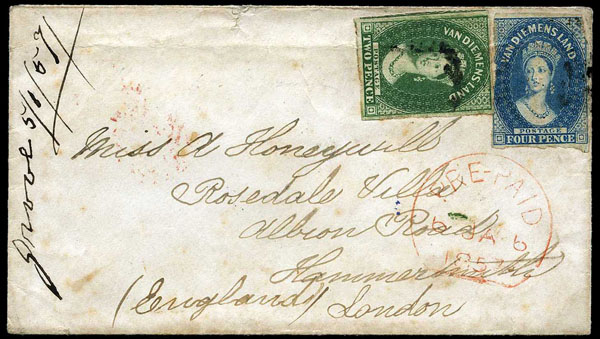 VAN DIEMENS LAND
POSTAGE
TWO PENCE
VAN DIEMENS LAND
POSTAGE
FOUR PENCE
Miss A Honeywill
Rosedale Villa
Albion Road
Hammersmith
(England) London
PRE-PAID
6 JA 6